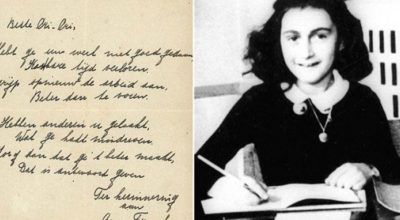 Beste Cri-Cri,
Hebt ge uw werk niet goed gedaan,
Kostbare tijd verloren,
rijp opnieuw de arbeid aan,
Beter dan te voren.
Hebben anderen u gelaakt,
Wat ge hadt misdreven,
Zorg dan dat ge 't beter maakt,
Dat is antwoord geven
Ter herinnering
aan